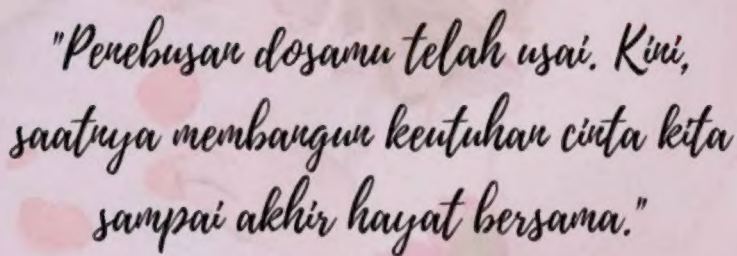 "Penebusan dosamu telah usai. Kini,
saatnya membangun keutuhan cinta kita
sampai akhir hayat bersama."